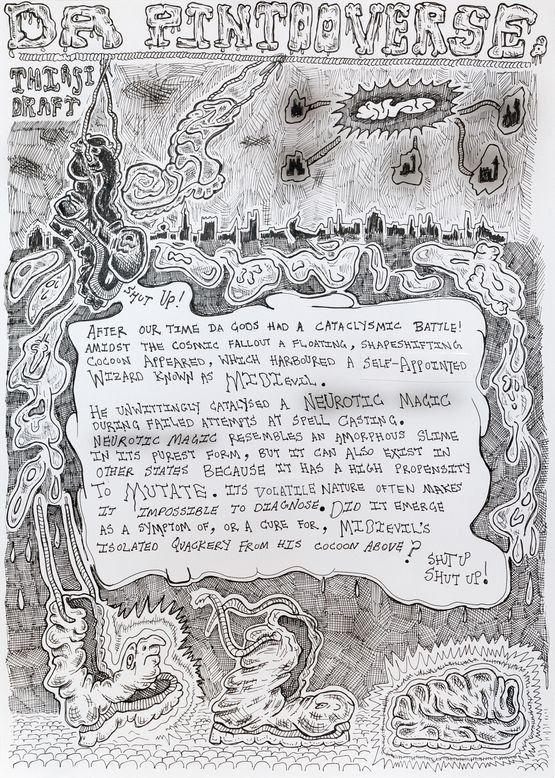 DA PINTOOVERSE.
THIRST
DRAFT
SHUT UP!
AFTER OUR TIME DA GODS HAD A CATACLYSMIC BATTLE!
AMIDST THE COSMIC FALLOUT A FLOATING, SHAPESHIFTING
COCOON APPEARED, WHICH HARBOURED A SELF-APPOINTED
WIZARD KNOWN AS MIDIEVIL.
HE UNWITTINGLY CATALYSED A NEUROTIC MAGIC
DURING FAILED ATTEMPTS AT SPELL CASTING.
NEUROTIC MAGIC RESEMBLES AN AMORPHOUS SLIME
IN ITS PUREST FORM, BUT IT CAN ALSO EXIST IN
OTHER STATES BECAUSE IT HAS A HIGH PROPENSITY
TO MUTATE. ITS VOLATILE NATURE OFTEN MAKES
IT IMPOSSIBLE TO DIAGNOSE. DID IT EMERGE
AS A SYMPTOM OF, OR A CURE FOR, MIDIEVIL'S
ISOLATED QUACKERY FROM HIS COCOON ABOVE?
SHUT UP
SHUT UP!